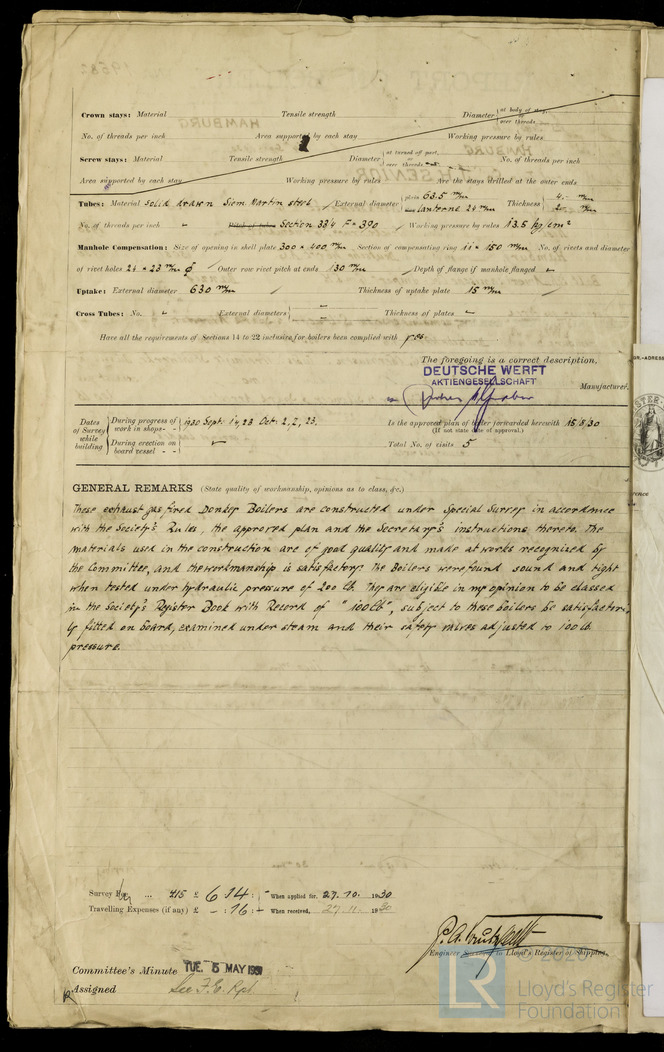 Crown stays: Material Tensile strength Diameter { at body of stay, or over threads.
No. of threads per inch Area supported by each stay Working pressure by rules
Screw stays: Material Tensile strength Diameter { at turned off part, or over threads No. of threads per inch
Area supported by each stay Working pressure by rules Are the stays drilled at the outer ends
Tubes: Material Solid drawn Siem. Martin steel External diameter { plain 63.5 m/m Lanterne 24 m/m Thickness { 4. m/m 2 m/m
No. of threads per inch Pitch of tubes Section 33/4 F=390 Working pressure by rules 13.5 kg/cm²
Manhole Compensation: Size of opening in shell plate 300 × 400 m/m Section of compensating ring 11 × 150 m/m No. of rivets and diameter
of rivet holes 24 × 23 m/m ϕ Outer row rivet pitch at ends 130 m/m Depth of flange if manhole flanged
Uptake: External diameter 630 m/m Thickness of uptake plate 15 m/m
Cross Tubes: No. External diameters { Thickness of plates
Have all the requirements of Sections 14 to 22 inclusive for boilers been complied with yes.
The foregoing is a correct description,
DEUTSCHE WERFT
AKTIENGESELLSCHAFT
Manufacturer.
Dates of Survey while building { During progress of work in shops - - 1930 Sept. 19, 23 Oct. 2, 2, 23.
During erection on board vessel - -
Is the approved plan of boiler forwarded herewith 15/8/30
(If not state date of approval.)
Total No. of visits 5
GENERAL REMARKS (State quality of workmanship, opinions as to class, &c.)
These exhaust gas fired Donkey Boilers are constructed under Special Survey in accordance
with the Society's Rules, the approved plan and the Secretary's instructions thereto. The
materials used in the construction are of good quality and made at works recognized by
the Committee, and the workmanship is satisfactory. The Boilers were found sound and tight
when tested under hydraulic pressure of 200 lb. They are eligible in my opinion to be classed
in the Society's Register Book with Record of "100 lb", subject to these boilers be satisfactori-
ly fitted on board, examined under steam and their safety valves adjusted to 100 lb
pressure.
Survey Fee ... £15 £ 6 14 : - When applied for, 27.10. 1930
Travelling Expenses (if any) £ - : 16 : - When received, 27.11. 1930
Engineer Surveyor to Lloyd's Register of Shipping.
Committee's Minute TUE. 5 MAY 1931
Assigned See F.E. Rpt
© 2020
LR
Lloyd's Register
Foundation